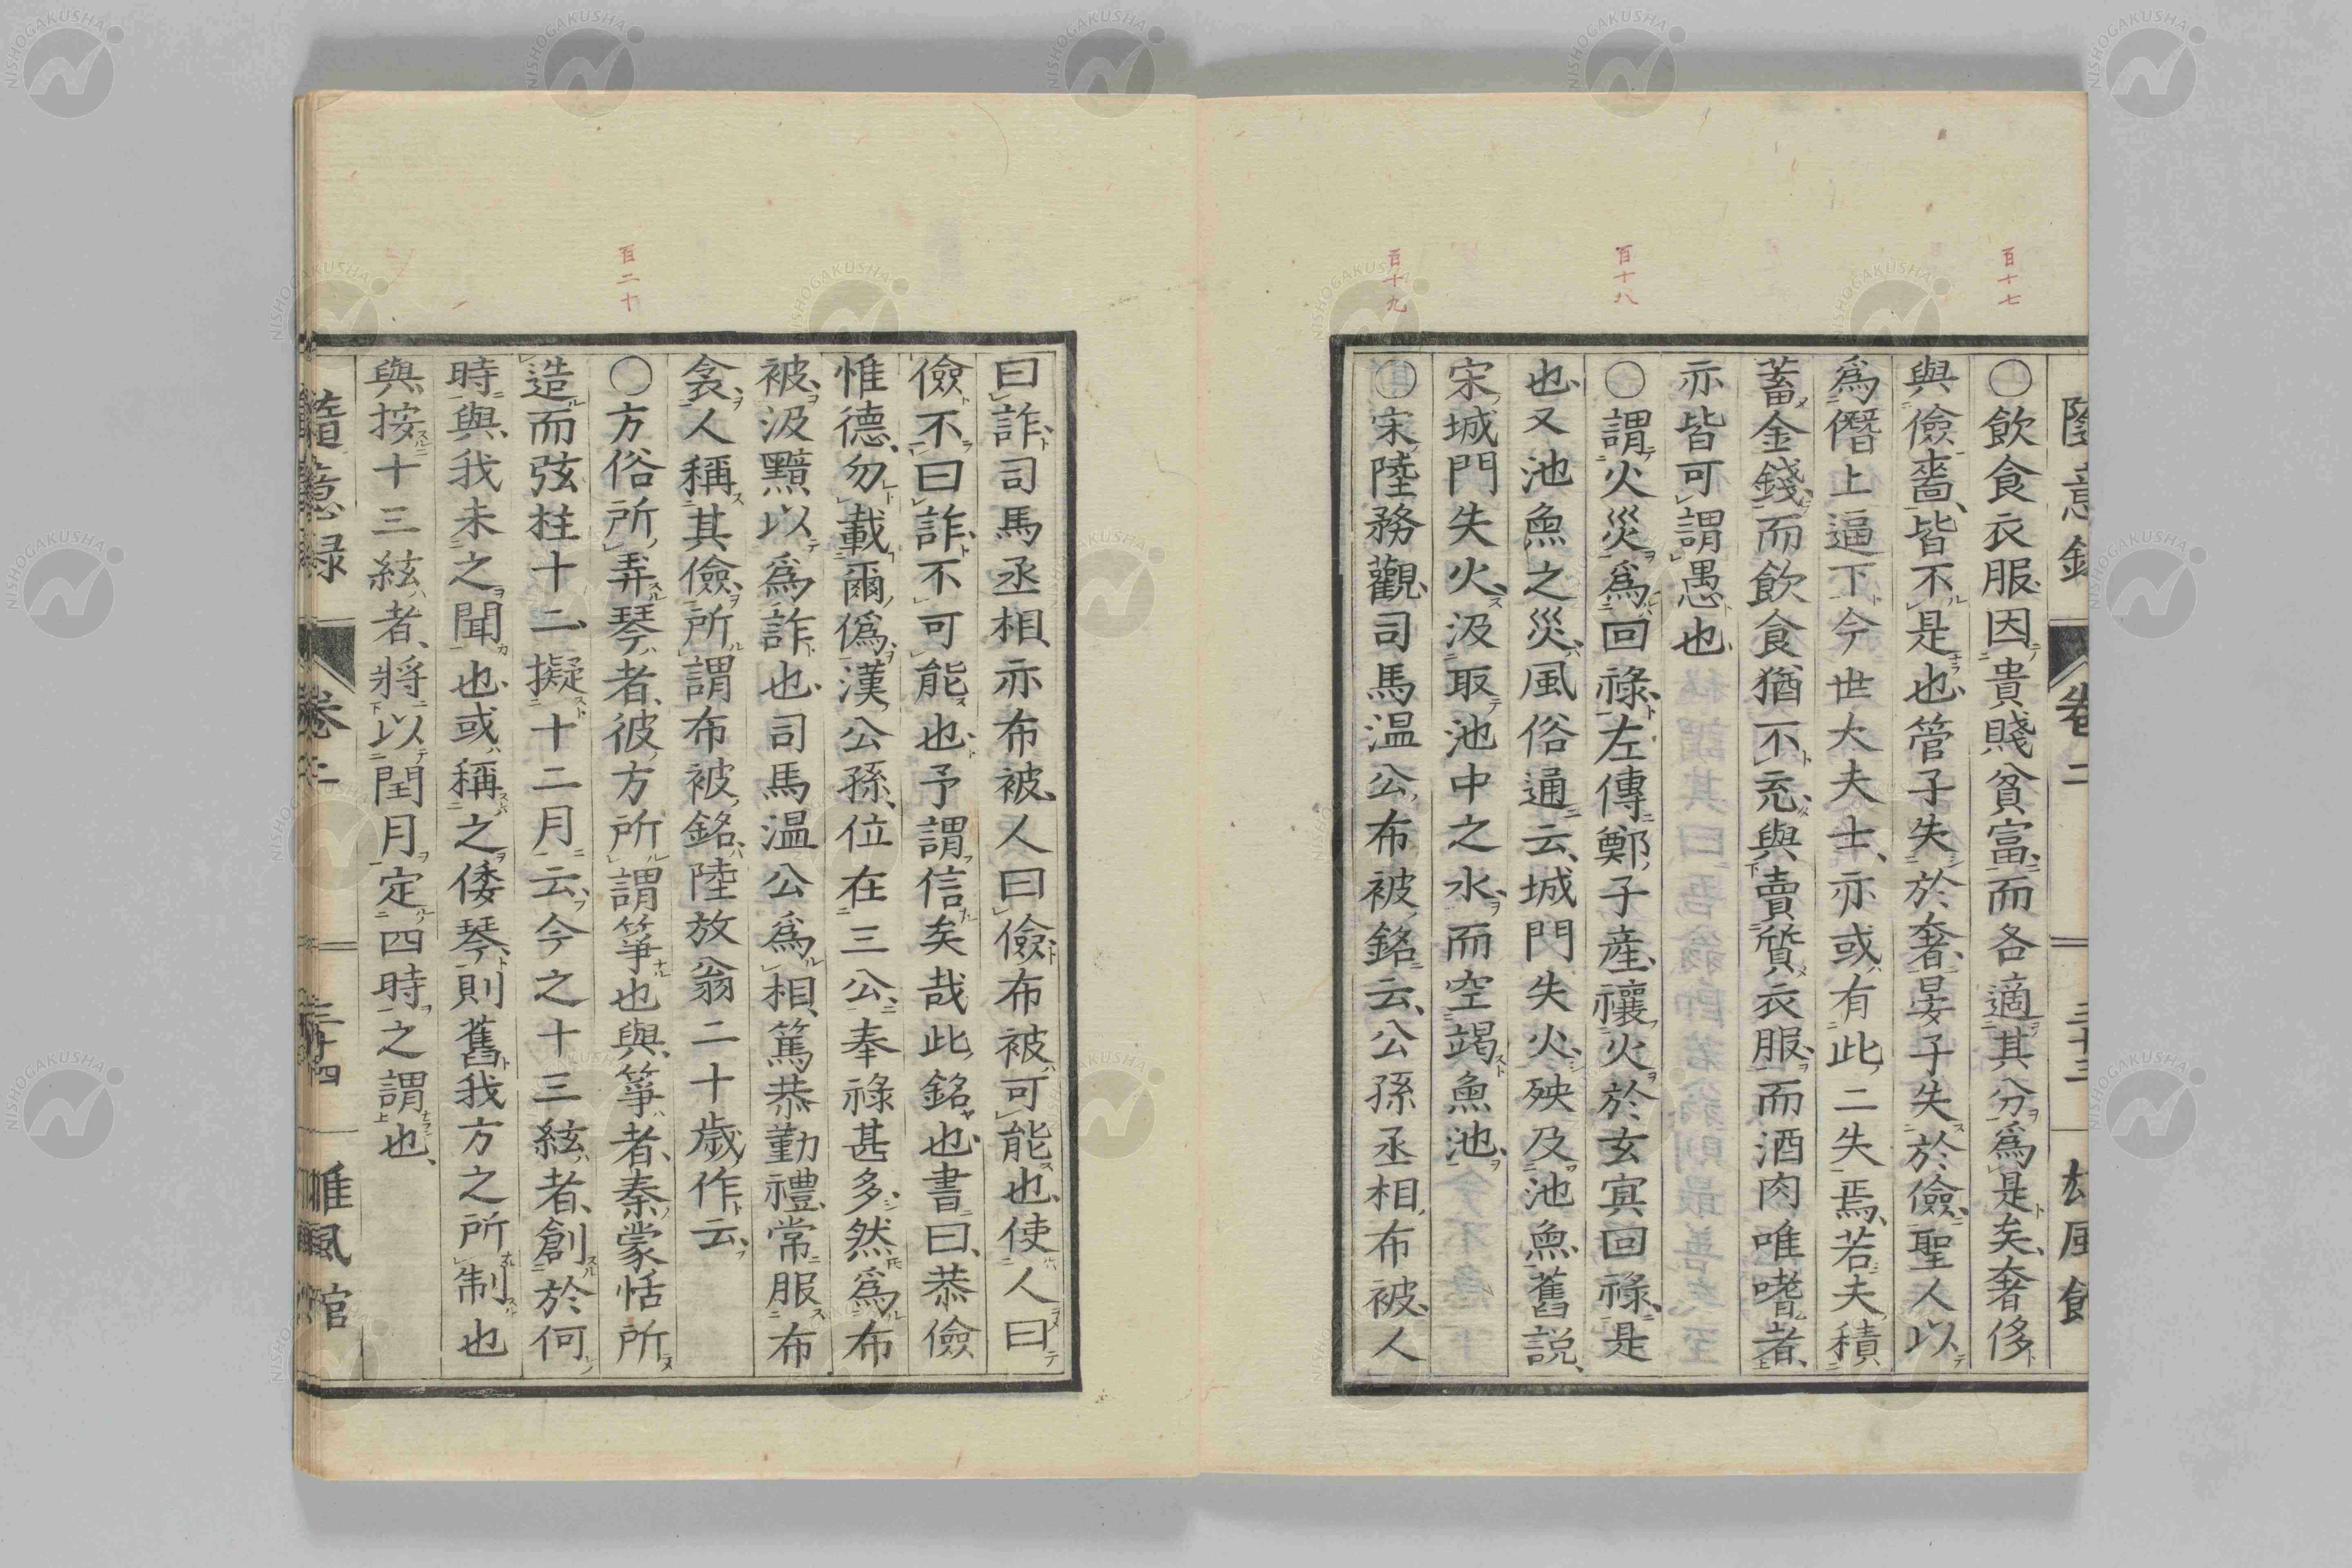 百十七
百十八
百十九
隨意錄
卷二
三十三
雄風館
○飮食衣服因貴賤貧富而各適其分爲是矣奢侈
與儉嗇皆不是也管子失於奢晏子失於儉聖人以
爲僭上逼下今世大夫士亦或有此二失焉若夫積
蓄金錢而飮食猶不充與賣質衣服而酒肉唯嗜者
亦皆可謂愚也
○謂火災爲回祿左傳鄭子產禳火於玄冥回祿是
也又池魚之災風俗通云城門失火殃及池魚舊説
宋城門失火汲取池中之水而空竭魚池
○宋陸務觀司馬温公布被銘云公孫丞相布被人
百二十
曰詐司馬丞相亦布被人曰儉布被可能也使人曰
儉不曰詐不可能也予謂信矣哉此銘也書曰恭儉
惟德勿載爾僞漢公孫位在三公奉祿甚多然爲布
被汲黯以爲詐也司馬温公爲相篤恭勤禮常服布
衾人稱其儉所謂布被銘陸放翁二十歲作云
○方俗所弄琴者彼方所謂箏也與箏者秦蒙恬所
造而弦柱十二擬十二月云今之十三絃者創於何
時與我未之聞也或稱之倭琴則舊我方之所制也
與按十三絃者將以閏月定四時之謂也
隨意録
卷二
三十四
雄風館